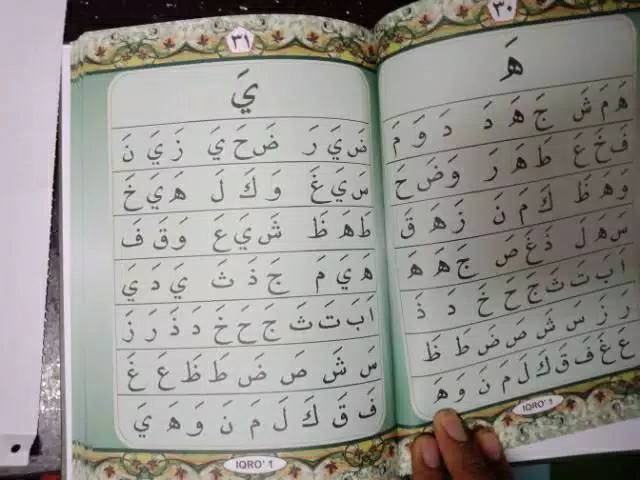 ٣٠
هَ
هَ مَ شَ جَ هَ دَ دَ وَ مَ
فَ خَ عَ طَ هَ رَ وَ ضَ حَ
وَ هَ ظَ كَ مَ نَ زَ هَ قَ
سَ هَ لَ دَ غَ صَ جَ هَ هَ
اَ بَ تَ ثَ جَ حَ خَ دَ ذَ
رَ زَ سَ شَ صَ ضَ طَ ظَ
عَ غَ فَ قَ كَ لَ مَ نَ وَ هَ
IQRO' 1
٣١
يَ
ضَ يَ رَ ضَ حَ يَ زَ يَ نَ
سَ يَ غَ وَ كَ لَ هَ يَ خَ
طَ هَ ظَ شَ يَ عَ وَ قَ فَ
هَ يَ مَ جَ ذَ ثَ يَ دَ يَ
اَ بَ تَ ثَ جَ حَ خَ دَ ذَ رَ زَ
سَ شَ صَ ضَ طَ ظَ عَ غَ
فَ قَ كَ لَ مَ نَ وَ هَ يَ
IQRO' 1